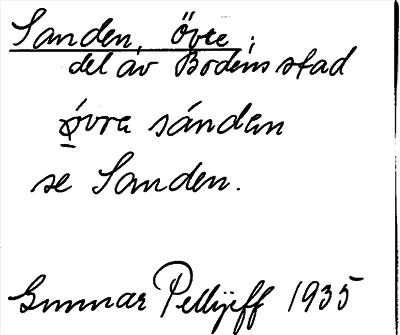 Sanden, övre;
del av Bodens stad
ǿ̱vra sándan
se Sanden.
Gunnar Pellijeff 1935